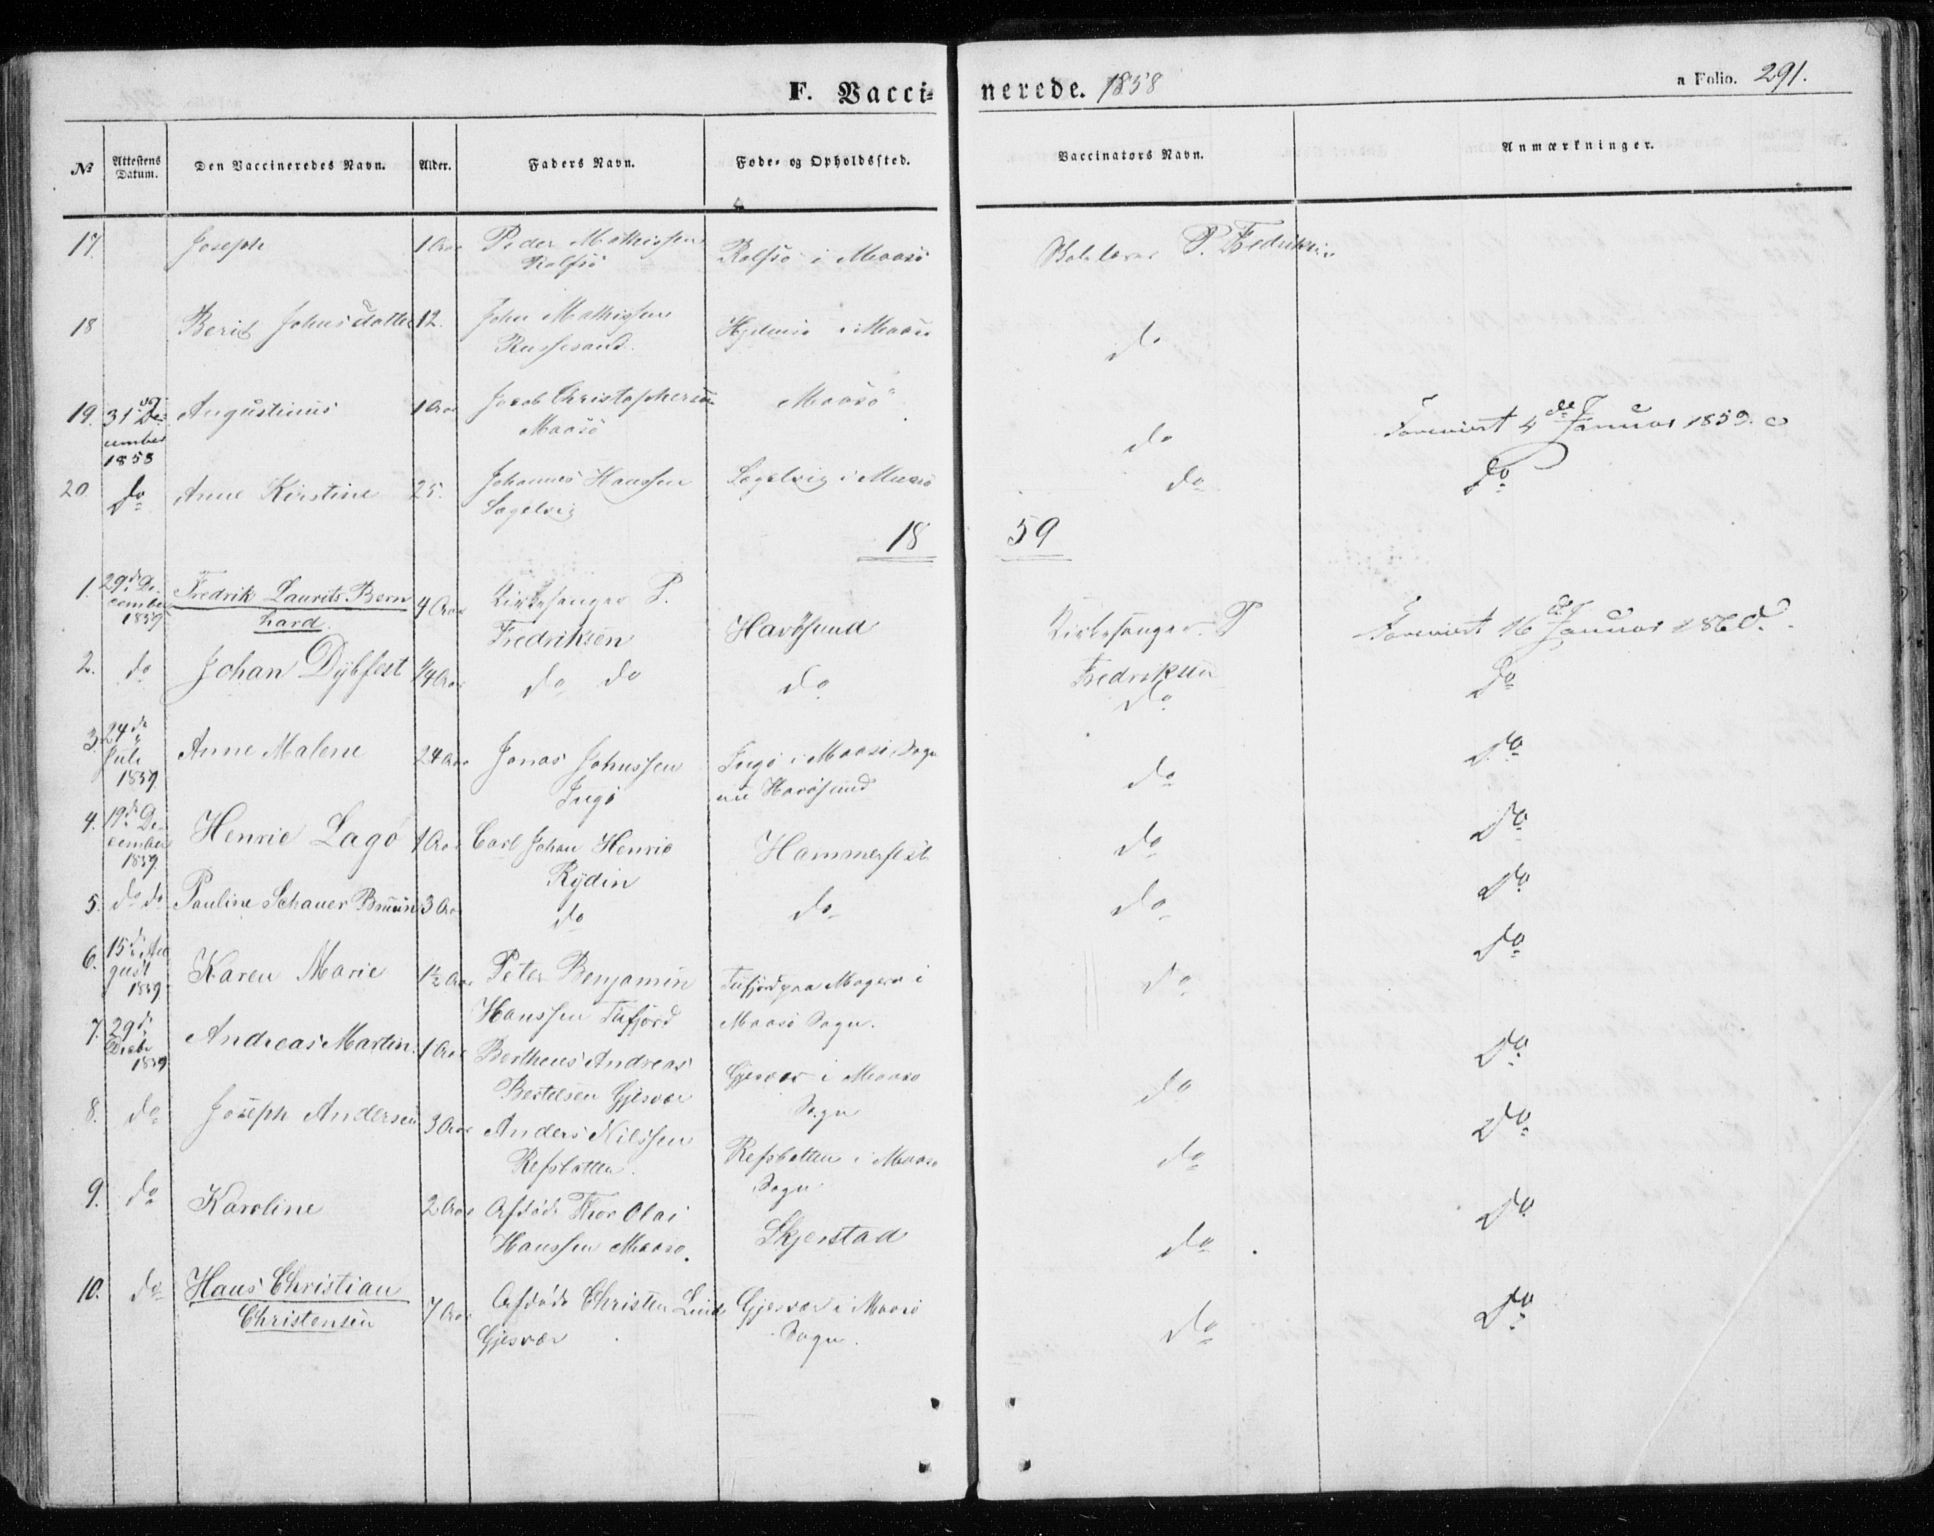 F. Vacci- nerede. 1858 a Folio. 291.
No Attestens Datum. Den Vaccineredes Navn. Alder. Faders Navn. Føde- og Opholdssted. Vaccinators Navn. Anmærkninger.
17. Joseph 1 Aar Peder Mathissen Rolfsø i Maasø P. Fedriksen
Rolfsø
18 Berit Johnsdatter 12. John Mathissen Hjelmsø i Maasø do
Russesand.
19. 31te De- Augustinus 1 Aar Jacob Christophersen Maasø do Foreviist 4de Januar 1859.
cember Maasø
1858
20. do Anne Kirstine 25. Johannes Hanssen Sægelvig i Maasø do do
Sægelvig
18 59
1. 29de De- Fredrik Laurits Bern 4 Aar Kirkesanger P. Havøsund Kirkesanger P Foreviist 16de Januar 1860.
cember hard. Fredriksen Fredriksen
1859
2. do Johan Dybfest 1/4 Aar do do do do do
3. 24de Anne Malene 24 Aar Jonas Johnssen Ingø i Maasø Sogn do do
Juli Ingø nu Havøsund
1859.
4. 19de De- Henrie Lagó 1 Aar Carl Johan Henrie Hammerfest do do
cember Rydin
1859.
5. do do Pauline Schauer Bruun 3 Aar do do do do
6. 15de Au Karen Marie 1½ Aar Peter Benjamin Tufjord paa Magerø i do do
gust Hanssen Tufjord Maasø Sogn.
1859.
7. 29de Andreas Martin. 1 Aar Bertheus Andreas Gjesvær i Maasø do do
Decbr Bertelsen Gjesvær Sogn
1859
8. do Joseph Andersen 3 Aar Anders Nilssen Refsbotten i Maasø do do
Refsbotten. Sogn
9. do Karoline 2 Aar Afdøde Thor Olai Skjerstad do do
Hanssen Maasø.
10. do Hans Christian 7 Aar Afdøde Christen Lind Gjesvær i Maasø do do
Christensen Gjesvær Sogn.